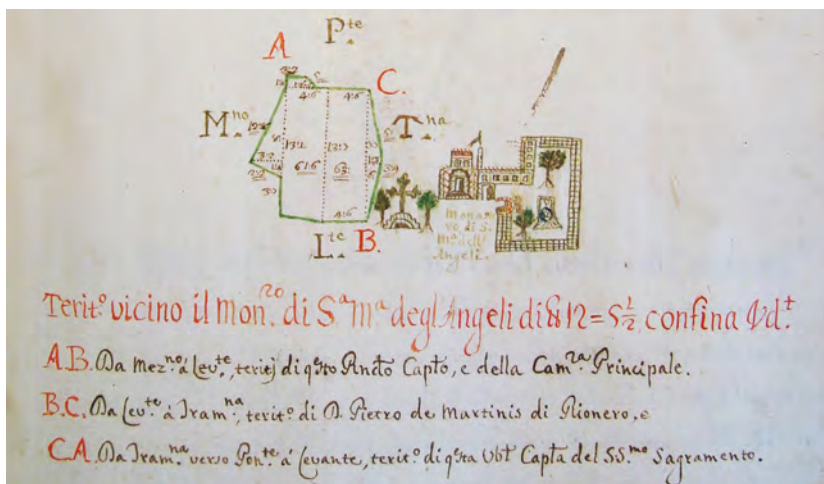 P.te
A
C.
M.no
T.na
4:6 4:6
13:2 13:2
61:6 63:
4:6
L.te B.
Monas.
ro. di S.
Ma. dell'
Angeli.
Terit.o vicino il Mon.ro di S.a M.a degl'Angeli di 12=5½ confina
A.B. Da Mez.no á Lev.te, teritej di q.sto Capto, e della Cam.ra Principale.
B.C. Da Lev.te á Tram.na, terit.o di D. Pietro de Martinis di Rionero, e
C.A. Da Tram.na verso Pon.te á Levante, terit.o di q.sta Capta del SS.mo Sagramento.